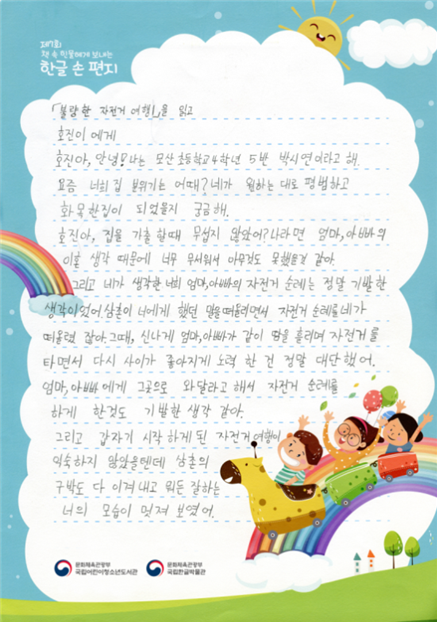 제7회
책 속 인물에게 보내는
한글 손 편지
「불량한 자전거 여행1」을 읽고
호진이에게
호진아, 안녕? 나는 모산초등학교 4학년 5반 박시연이라고 해.
요즘 너희 집 분위기는 어때? 네가 원하는 대로 평범하고
화목한 집이 되었을지 궁금해.
호진아, 집을 가출할 때 무섭지 않았어? 나라면 엄마, 아빠와의
이혼 생각 때문에 너무 무서워서 아무것도 못했을것 같아
그리고 네가 생각한 너희 엄마, 아빠와의 자전거 순례는 정말 기발한
생각이었어 삼촌이 너에게 했던 말을 떠올리면서 자전거 순례를 네가
떠올렸잖아. 그때, 신나게 엄마, 아빠가 같이 땀을 흘리며 자전거를
타면서 다시 사이가 좋아지게 노력한 건 정말 대단했어.
엄마, 아빠에게 그곳으로 와달라고 해서 자전거 순례를
하게 한것도 기발한 생각 같아.
그리고 갑자기 시작하게 된 자전거 여행이
익숙하지 않았을텐데 삼촌의
구박도 다 이겨내고 뭐든 잘하는
너의 모습이 멋져 보였어.
문화체육관광부
국립어린이청소년도서관
문화체육관광부
국립한글박물관